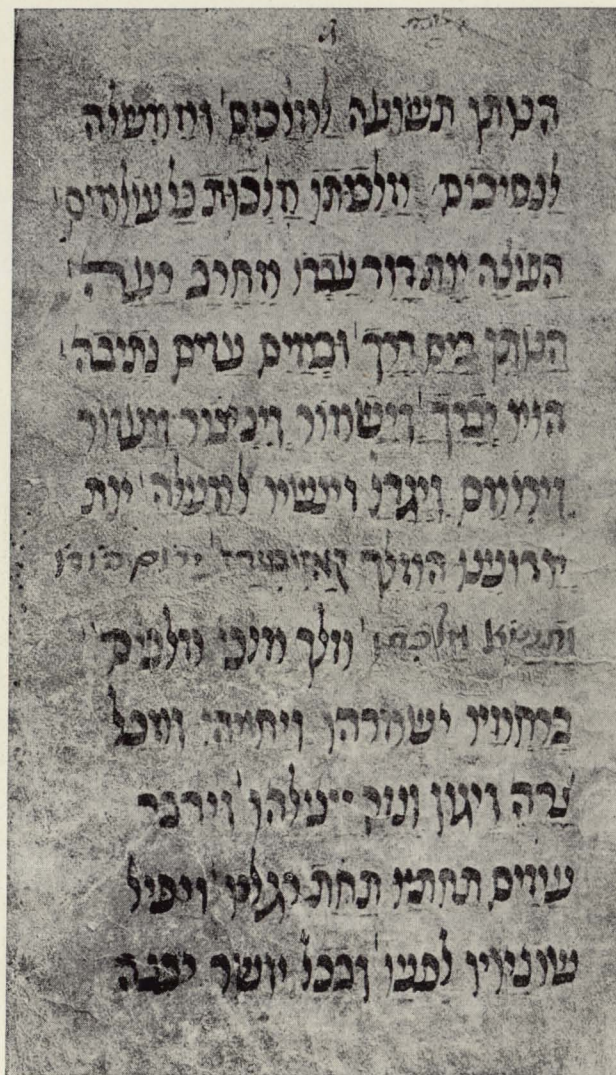 הנותן תשועה למלכים וממשלה
לנסיכים ומלכותו מלכות כל עולמים
הפוצה את דוד עבדו מחרב רעה
הנותן בים דרך ובמים עזים נתיבה
הוא יברך וישמור וינצור ויעזור
וירומם ויגדל וינשא למעלה את
אדונינו המלך ירום הודו
ותנשא מלכותו מלך מלכי מלכים
ברחמיו ישמרהו ויחייהו ומכל
צרה ויגון ונזק יצילהו וידבר
עמים תחתיו תחת רגליו ויפיל
שונאיו לפניו ובכל אשר יפנה